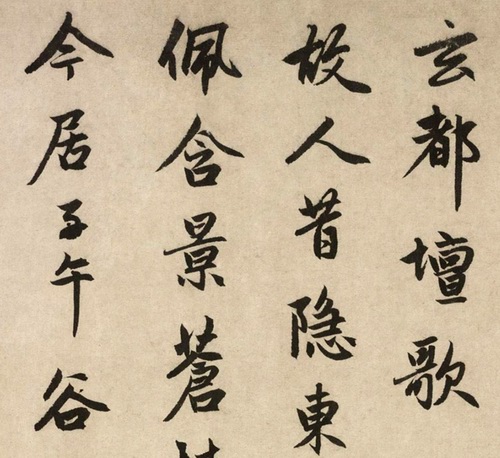 玄都壇歌
故人昔隐東
佩含景蒼
今居子午谷